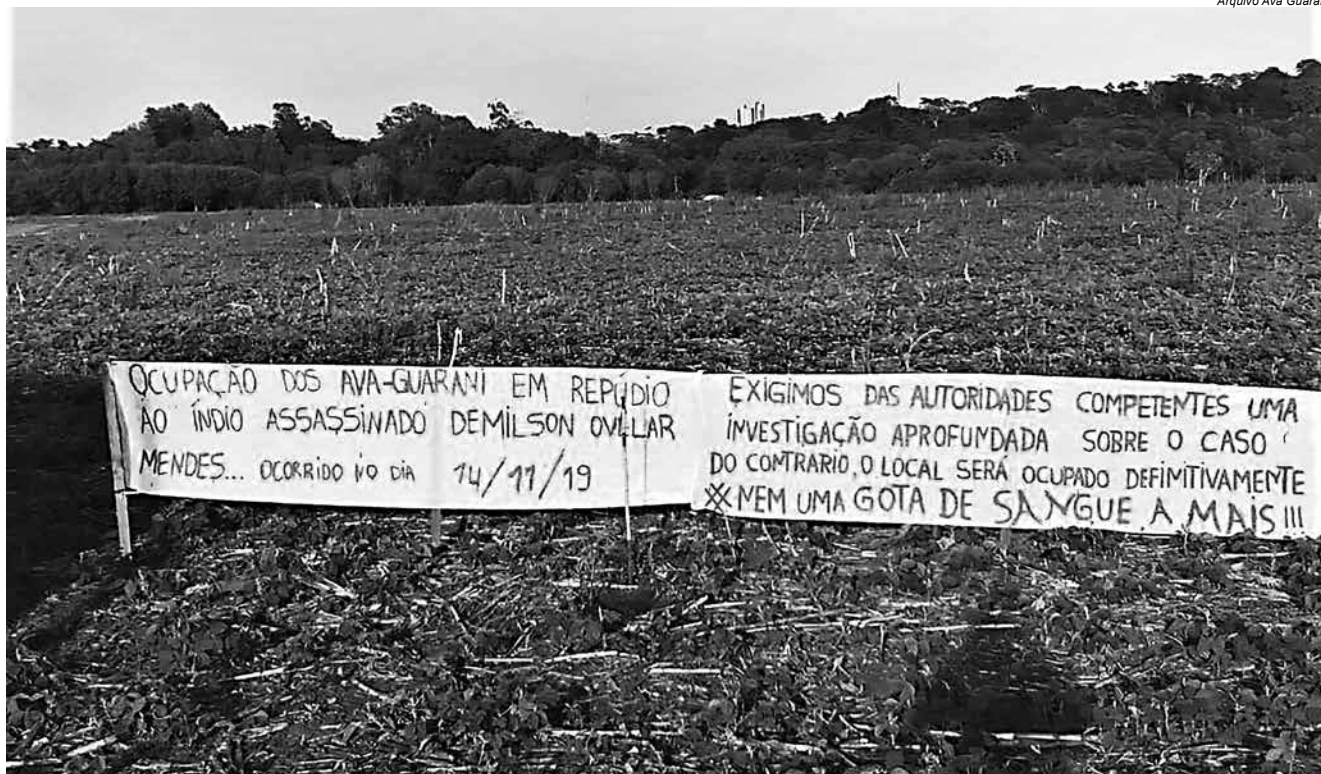 Arquivo Ava Guara
OCUPAÇÃO DOS AVA-GUARANI EM REPÚDIO
AO ÍNDIO ASSASSINADO DEMILSON OVELAR
MENDES... OCORRIDO NO DIA 14/11/19
EXIGIMOS DAS AUTORIDADES COMPETENTES UMA
INVESTIGAÇÃO APROFUNDADA SOBRE O CASO
DO CONTRARIO, O LOCAL SERÁ OCUPADO DEFIMITIVAMENTE
NEM UMA GOTA DE SANGUE A MAIS!!!